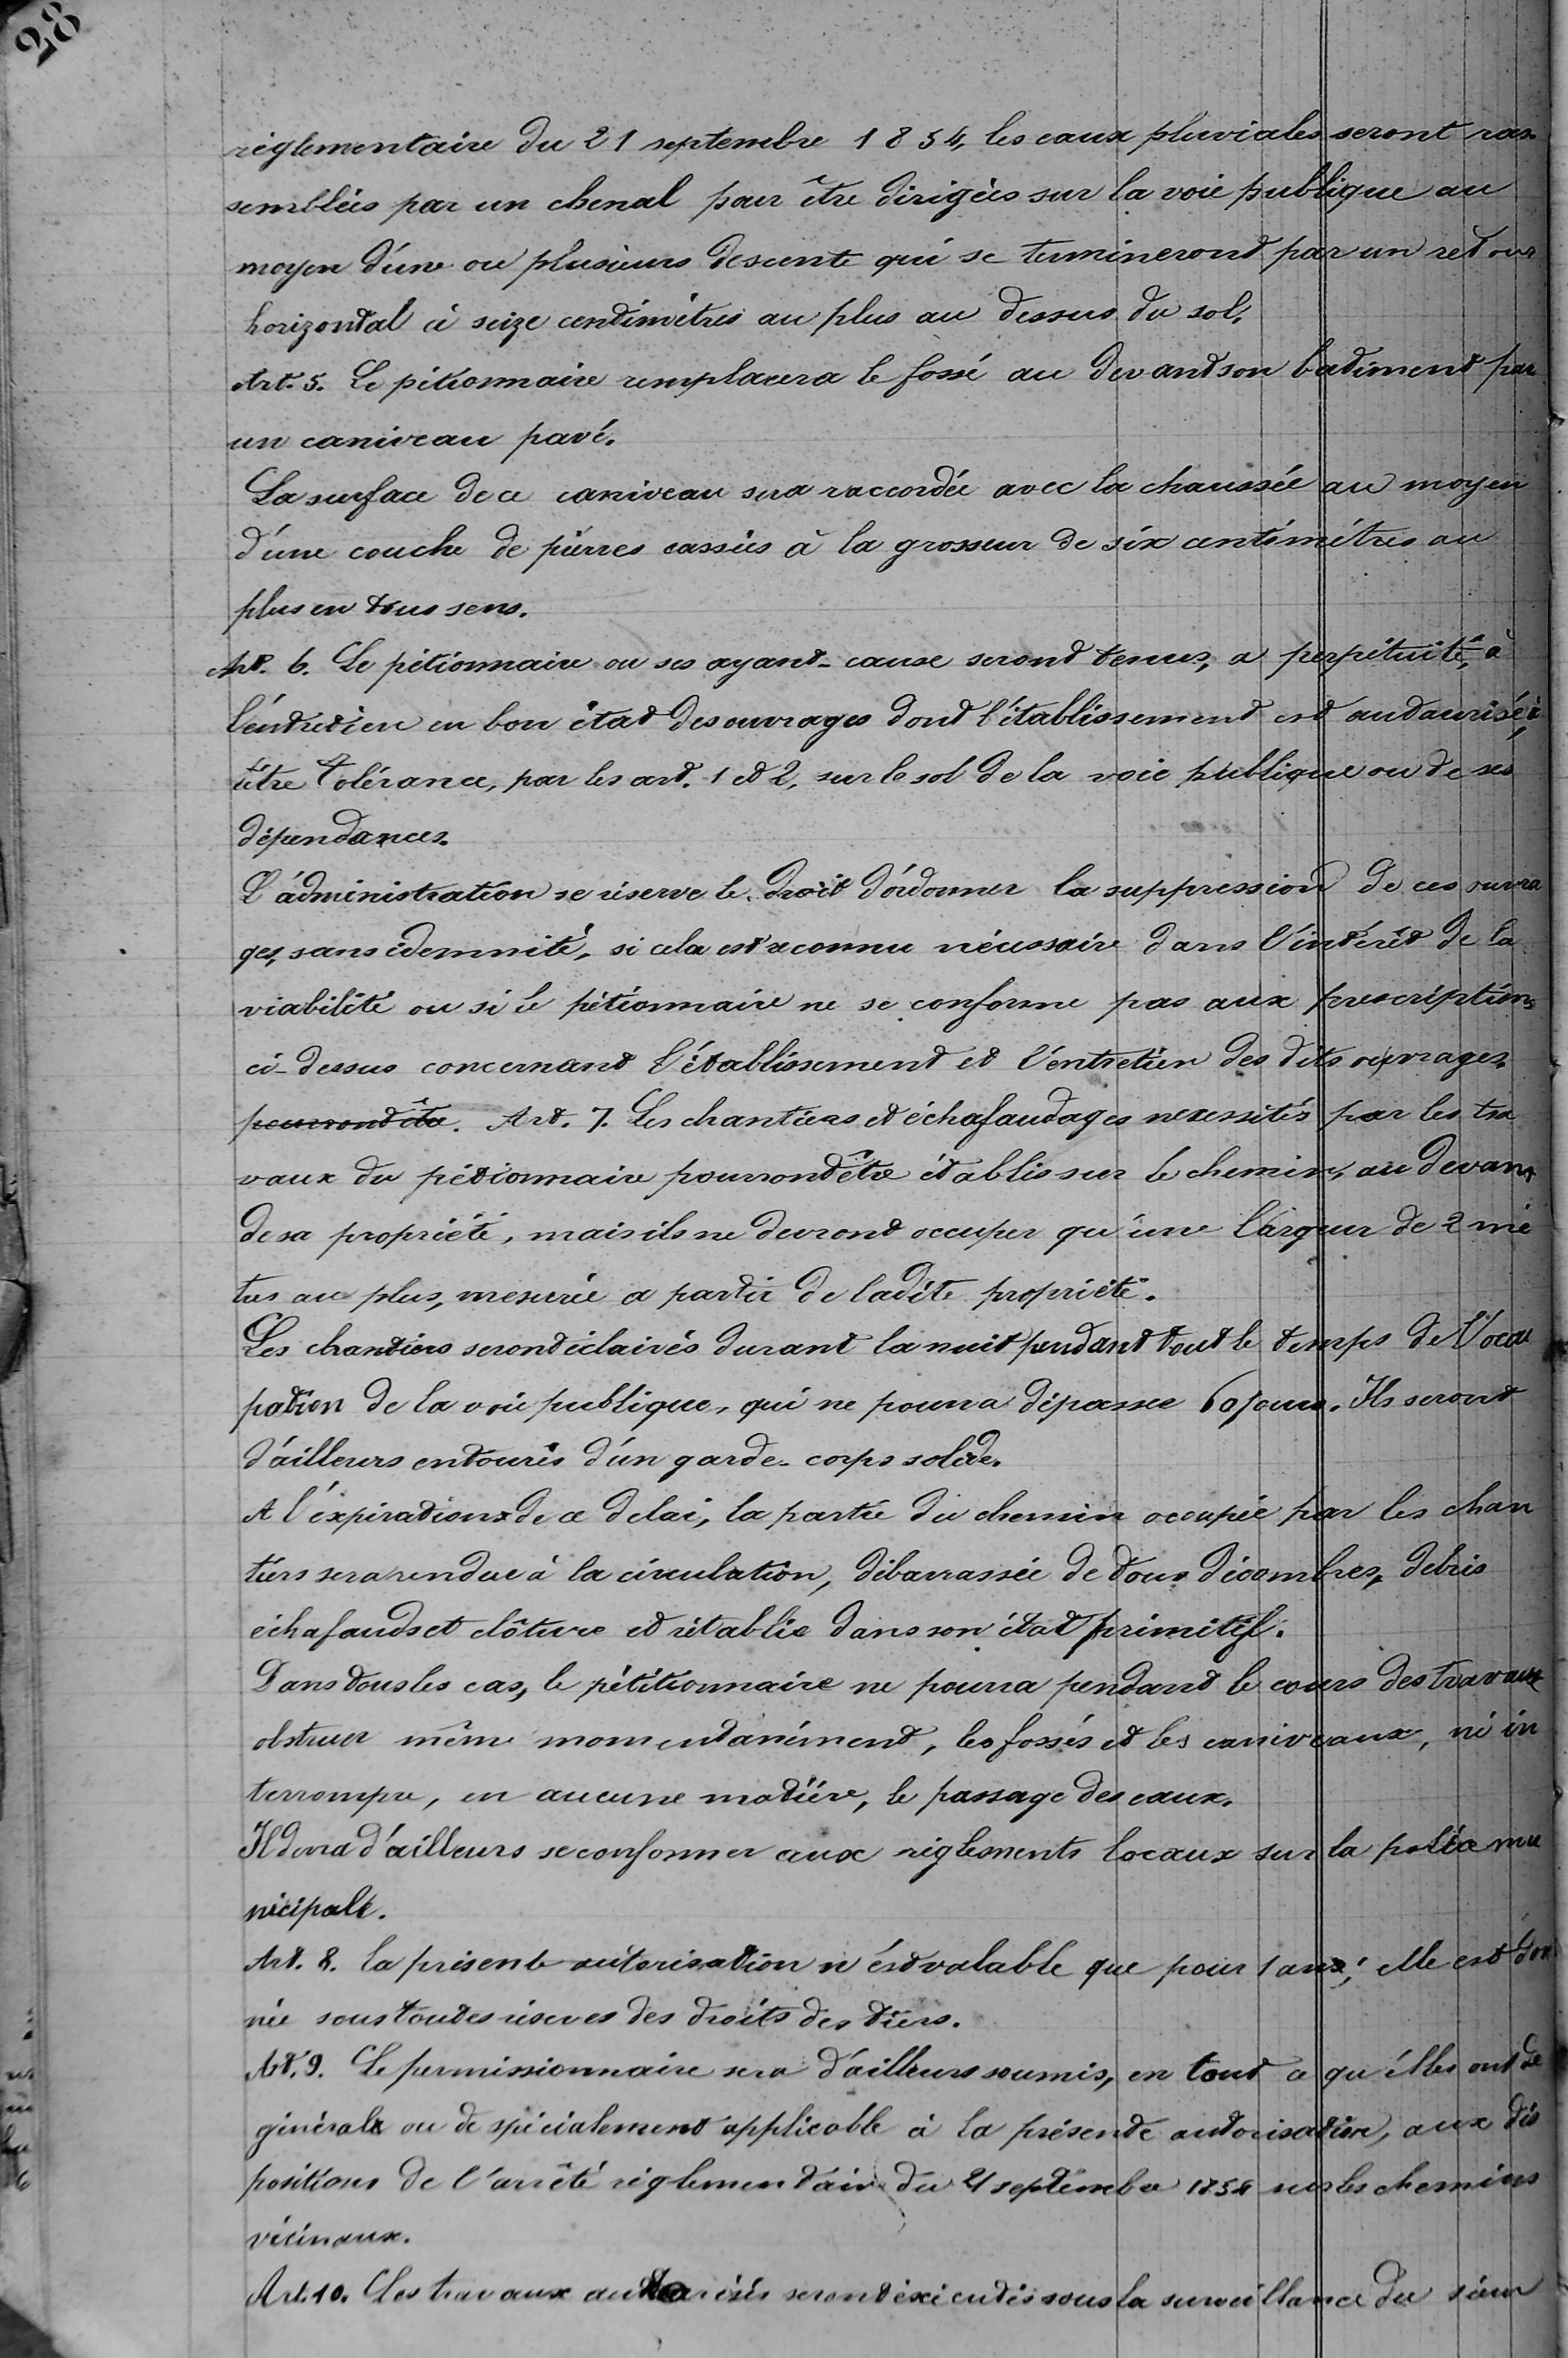 28
réglementaire du 21 septembre 1854, les eaux pluviales seront ras
semblées par un chenal pour être dirigées sur la voie publique au
moyen d'une ou plusieurs descente qui se terminerond par un retour
horizontal à seize centimètres au plus au dessus du sol.
Art. 5. Le pétionnaire remplacera le fossé au devant son batiment par
un caniveau pavé.
La surface de ce caniveau sera raccordée avec la chaussée au moyen
d'une couche de pierres cassées à la grosseur de six centimétres au
plus en tous sens.
Art. 6. Le pétionnaire ou ses ayant-cause seront tenus, a perpétuité, à
l'entretien en bon état des ouvrages dont l'établissement est autaurisé, à
titre tolérance, par les art. 1 et 2, sur le sol de la voie publique ou de ses
dépendances.
L'administration se réserve le droit d'ordonner la suppression de ces ouvra
ges, sans idemnité, si cela est reconnu nécessaire dans l'intérêt de la
viabilité ou si le pétionnaire ne se conforme pas aux prescriptions
ci-dessus concernant l'établissement et l'entretien des dits ouvrages.
pourront être. Art. 7. Les chantiers et échafaudages nécessités par les tra
vaux du pétionnaire pourront être établis sur le chemin, au devant
de sa propriété, mais ils ne devront occuper qu'une largeur de 2 mè
tres au plus, mesurée a partir de ladite propriété.
Les chantiers seront éclairés durant la nuit pendant tout le temps de l'occu
pation de la voie publique, qui ne pourra dépasser 60 jours. Ils seront
d'ailleurs entourés d'un garde-corps solide.
A l'expiration de ce delai, la partie du chemin occupée par les chan
tiers sera rendue à la circulation, débarrassée de tous décombres, debris
échafauds et clôture et rétablie dans son état primitif.
Dans tous les cas, le pétitionnaire ne pourra pendant le cours des travaux
obstruer même momentanément, les fossés et les caniveaux, ni in
terrompre, en aucune matière, le passage des eaux.
Il devra d'ailleurs se conformer aux réglements locaux sur la police mu
nicipale.
Art. 8. la présente autorisation n'est valable que pour 1 an; elle est don
née sous toutes réserves des droits des tiers.
Art. 9. Le permissionnaire sera d'ailleurs soumis, en tout ce qu'elles ont de
générale ou de spécialement applicable à la présente autorisation, aux dis
positions de l'arrêté réglementaire du 21 septembre 1854 sur les chemins
vicinaux.
Art. 10. Les travaux autorisés seront éxécutés sous la surveillance du sieur